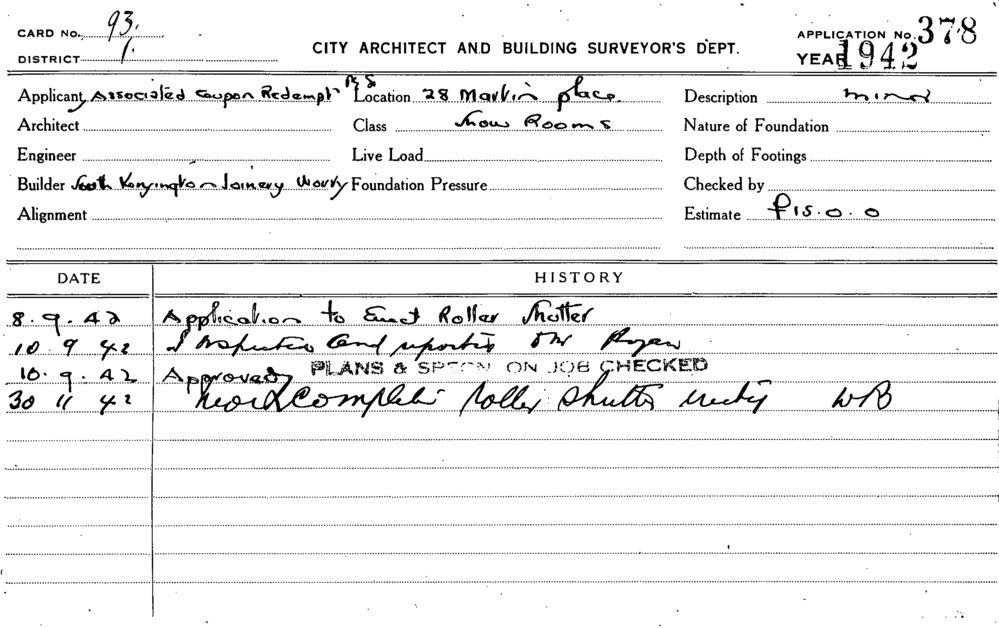 CARD NO. 93.
DISTRICT 1.
CITY ARCHITECT AND BUILDING SURVEYOR'S DEPT.
APPLICATION NO. 378
YEAR 1942
Applicant Associated Coupon Redempt Location 28 Martin place. Description minor
Architect Class Show Rooms Nature of Foundation
Engineer Live Load Depth of Footings
Builder South Kensington Joinery Works Foundation Pressure Checked by
Alignment Estimate £15.0.0
DATE HISTORY
8.9.42 Application to Erect Roller Shutter
10 9 42 I Inspected and reported
10.9.42 Approved PLANS & SPECN ON JOB CHECKED
30 11 42 Work Complete roller shutter